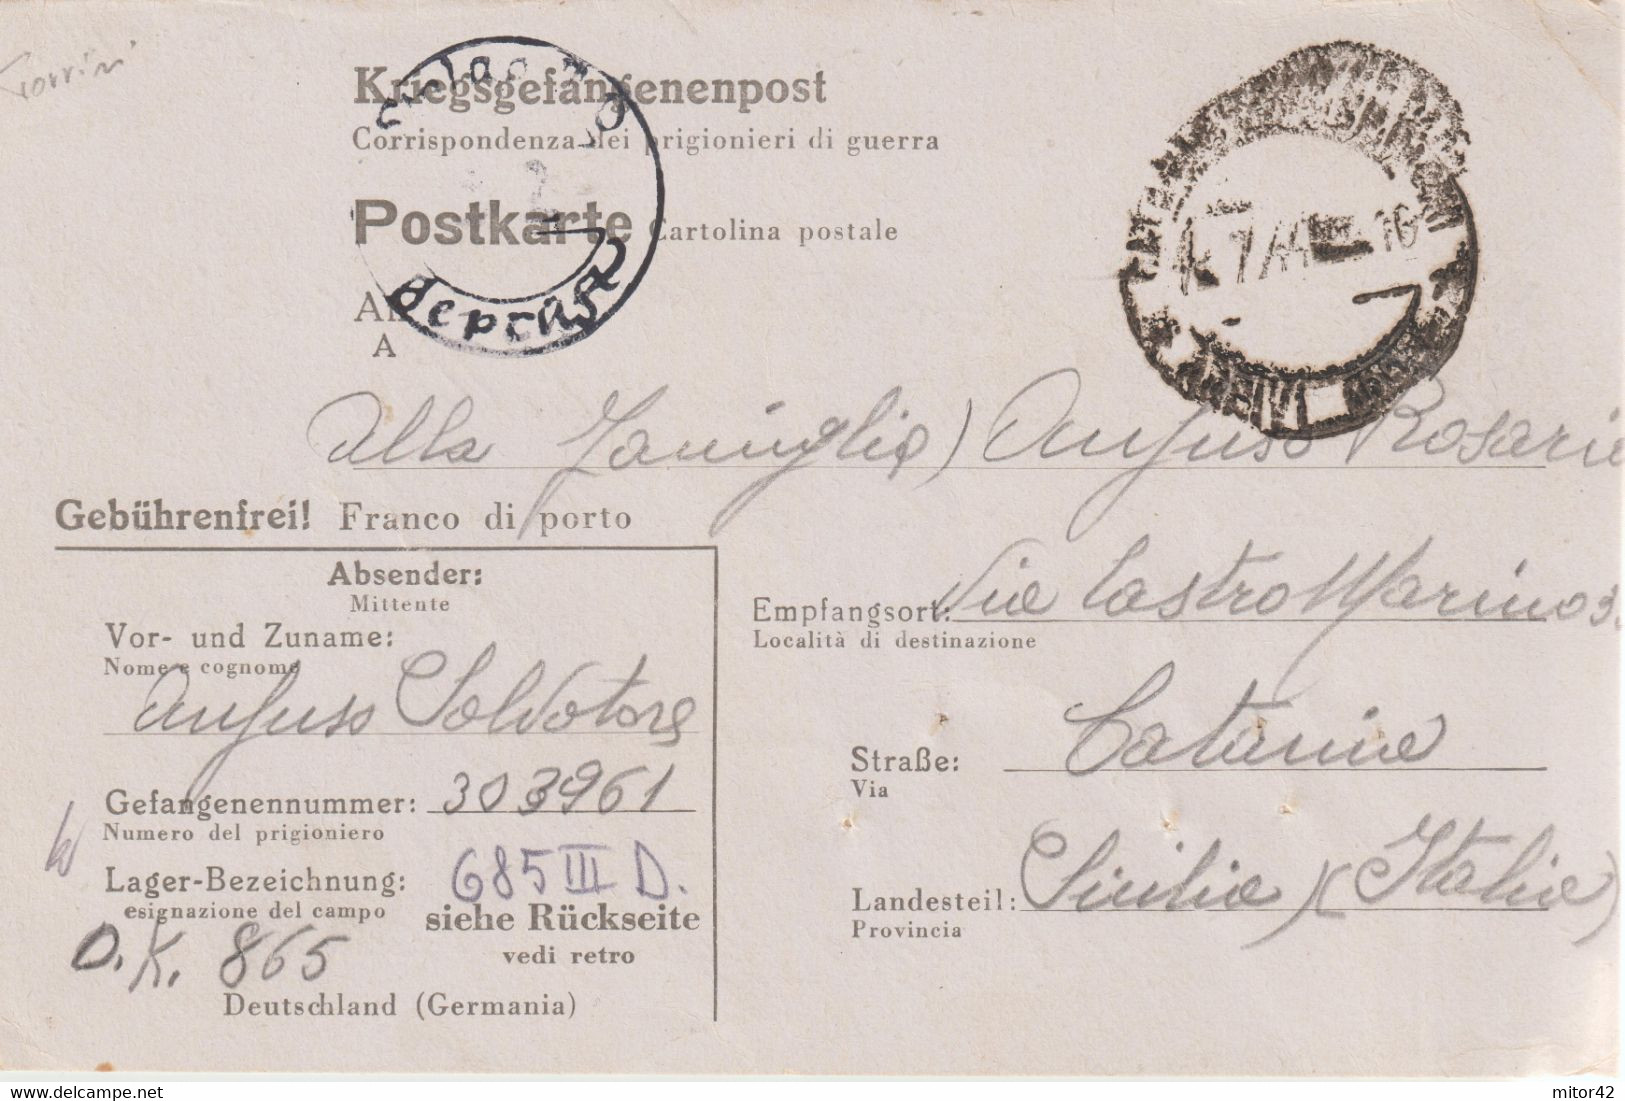 Kriegsgefangenenpost
Corrispondenza dei prigionieri di guerra
Postkarte Cartolina postale
An
A
Geprüft
Alla Famiglia) Anfuso Rosario
Gebührenfrei! Franco di porto
Absender:
Mittente
Vor- und Zuname:
Nome e cognome
Anfuso Salvatore
Gefangenennummer: 303961
Numero del prigioniero
Lager-Bezeichnung: 685 III D.
esignazione del campo
siehe Rückseite
vedi retro
O.K. 865
Deutschland (Germania)
Empfangsort: Via Castro Marino 3
Località di destinazione
Straße: Catania
Via
Landesteil: Sicilia) (Italia)
Provincia
mitor42